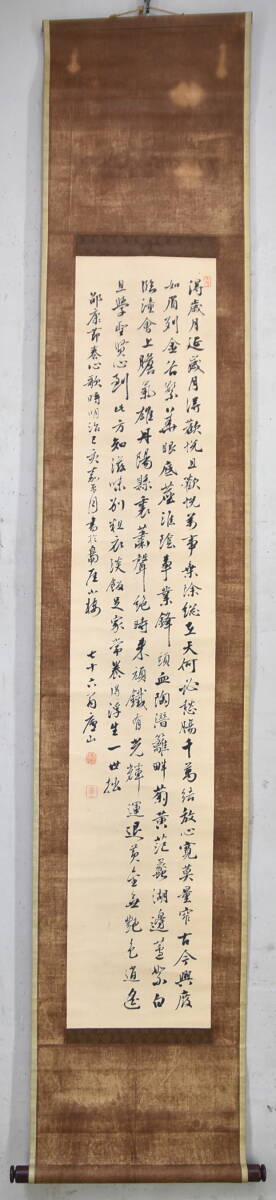 得歲月延歲月得歡悅且歡悅萬事乘除總在天何必愁腸千萬結放心寬莫量窄古今興廢
如眉列金谷繁華眼底塵淮陰事業鋒頭血陶潛籬畔菊黃范蠡湖邊蘆絮白
臨潼會上膽氣雄丹陽縣裏蕭聲絕時來頑鐵有光輝運退黃金無艷色逍遙
且學聖賢心到此方知滋味別粗衣淡飯足家常養得浮生一世拙
邵康節養心歌時明治己亥嘉平月書於小樓 七十六翁山